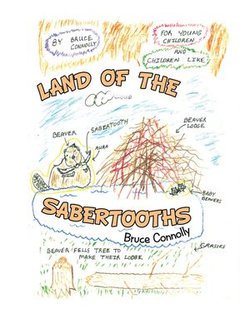 BY BRUCE
CONNOLLY
FOR YOUNG
CHILDREN
AND
CHILDREN LIKE
LAND OF THE
CLOUD
BEAVER
SABERTOOTH
AURA
BEAVER
LODGE
BABY
BEAVERS
SABERTOOTHS
Bruce Connolly
BEAVER FELLS TREE TO
MAKE THEIR LODGE
GRASS